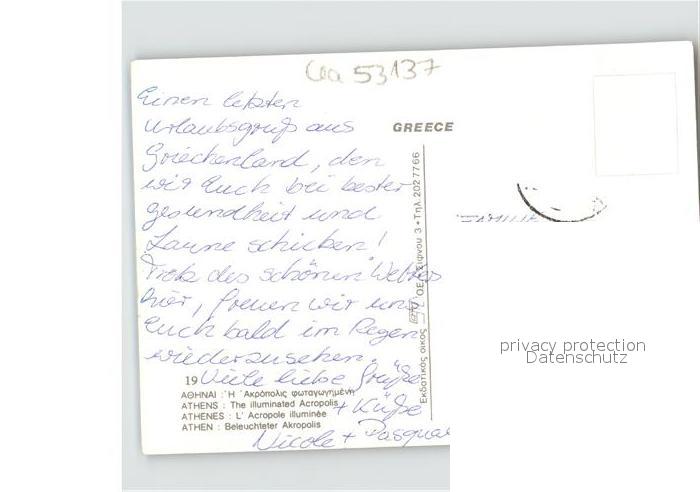 53137
Einen letzten
Urlaubsgruß aus
Griechenland, den
wir Euch bei bester
Gesundheit und
Laune schicken!
Trotz des schönen Wetters
hier, freuen wir uns
Euch bald im Regen
wiederzusehen.
Viele liebe Grüße
+ Küße
Nicole + Pasquale
GREECE
FAMILIE
19
ΑΘΗΝΑΙ : Ἡ Ἀκρόπολις φωταγωγημένη
ATHENS : The illuminated Acropolis
ATHENES : L' Acropole illuminée
ATHEN : Beleuchteter Akropolis
Ἐκδοτικὸς οἶκος Ο.Ε. 3 • Τηλ. 2027766
privacy protection
Datenschutz